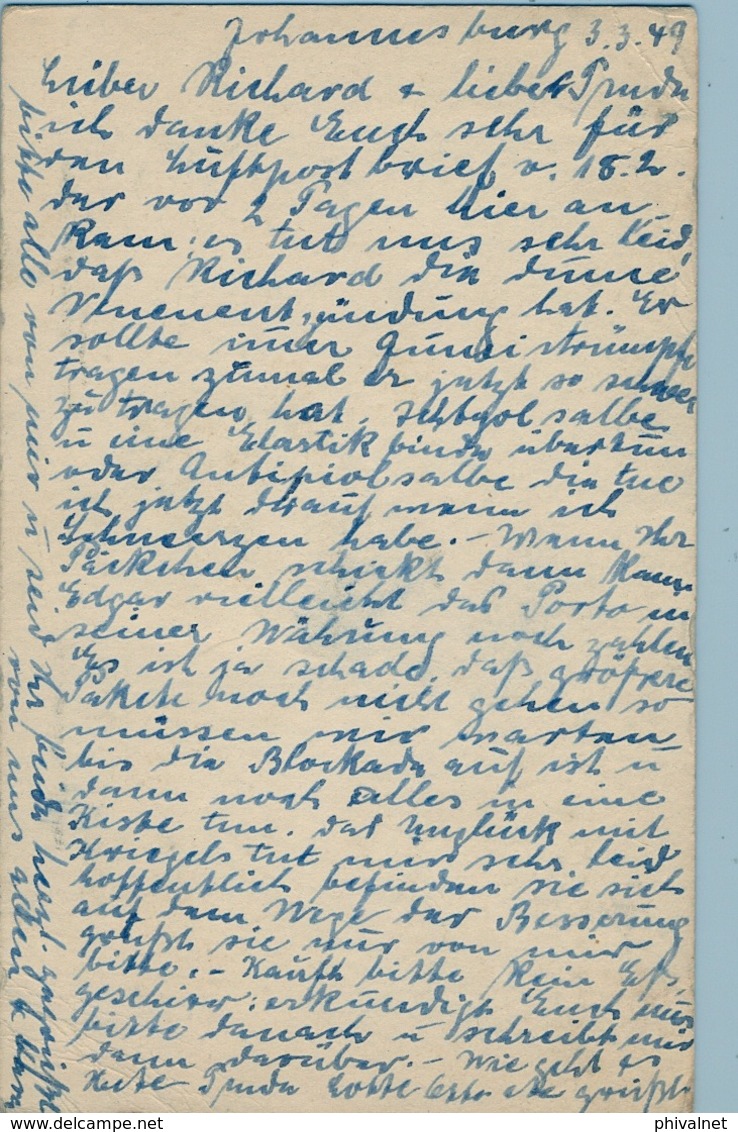 Johannesburg 3.3.49
Lieber Richard + liebe Trude
ich danke Euch sehr für
den Luftpostbrief v. 18.2.
der vor 2 Tagen hier an
kam; es tut uns sehr leid,
daß Richard die dumme
Venenentzündung hat. Er
sollte immer Gummistrümpfe
tragen zumal er jetzt so schwer
zu tragen hat. Ichtyolsalbe
u eine Elastikbinde übertun
oder Antipiolsalbe die tue
ich jetzt drauf wenn ich
Schmerzen habe. – Wenn Ihr
Päckchen schickt dann kann
Edgar vielleicht das Porto in
seiner Währung noch zahlen
Es ist ja schade, daß größere
Pakete noch nicht gehen so
müssen wir warten
bis die Blockade auf ist u
dann noch alles in eine
Kiste tun. Das Unglück mit
Kriegels tut mir sehr leid
hoffentlich befinden sie sich
auf dem Wege der Besserung
grüßt sie nur von mir
bitte. – Kauft bitte kein Eß,
geschirr; erkundigt Euch nur
bitte danach u schreibt uns
dann darüber. – Wie geht es
Trude Lotte Otto etc grüßt
bitte alle von mir u seid Ihr beide herzl. gegrüßt
von uns allen